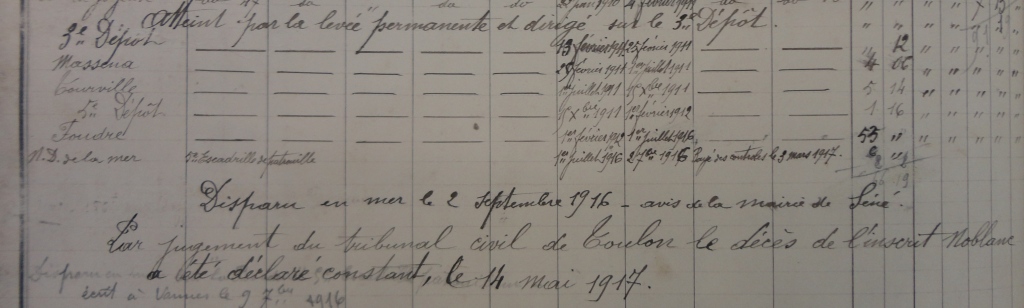 Atteint par la levée permanente et dirigé sur le 3e Dépôt.
3e Dépôt 13 février 1911 25 février 1911 " 12
Massena 26 février 1911 1er juillet 1911 4 06
Tourville 1er juillet 1911 15 Xbre 1911 5 14
5e Dépôt 15 Xbre 1911 1er février 1912 1 16
Foudre 1er février 1912 1er juillet 1916 53 "
N.D. de la mer 5e Escadrille de patrouille 1er juillet 1916 2 7bre 1916 Rayé des contrôles le 3 mars 1917.
Disparu en mer le 2 septembre 1916 - avis de la mairie de Séné.
Par jugement du tribunal civil de Toulon le décès de l'inscrit Noblanc
a été déclaré constant, le 14 mai 1917.
Disparu en
écrit à Vannes le 9 7bre 1916